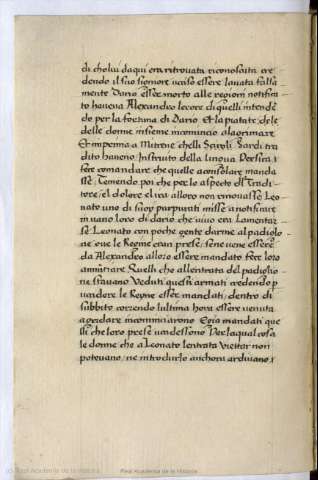 di cholui daqui era ritrouata riconosciuta cre
dendo il suo signore ucciso essere lauata falsa
mente Dario essere morto alle regioni notifica
to haueua Alexandro le core di quelli intende
do per la fortuna di Dario Et la pietate dele
delle donne insieme incomincio a lagrimare
Et imperma a Mitrene chelli Saroli Sardi tra
dito haueno Instruto della lingua Persica
fece comandare che quelle a consolare manda
sse Temendo poi che per lo aspeto di Tradi
tore il dolore el ira a lloro non rinouasse Leo
nato uno di suoy purpurati misse a notificare
in uano loro di dario che uiuo era Lamentar
se Leonato con poche gente darme al padiolo
ne oue le Regine eran prese sene uene essere
da Alexandro a lloro essere mandato fece loro
anuntiare Quelli che all entrata del padiolio
ne stauano Veduti questi armati credendo p
uendere le Regine esser mandati dentro di
subbito correndo lultima hora essere uenuta
a cridare incominciarono E gia mandati que
lli che loro prese uendessono Per la qual cosa
le donne che a Leonato lentrata Vietar non
poteuano ne introdurlo anchora ardiuano
Real Academia de la Historia